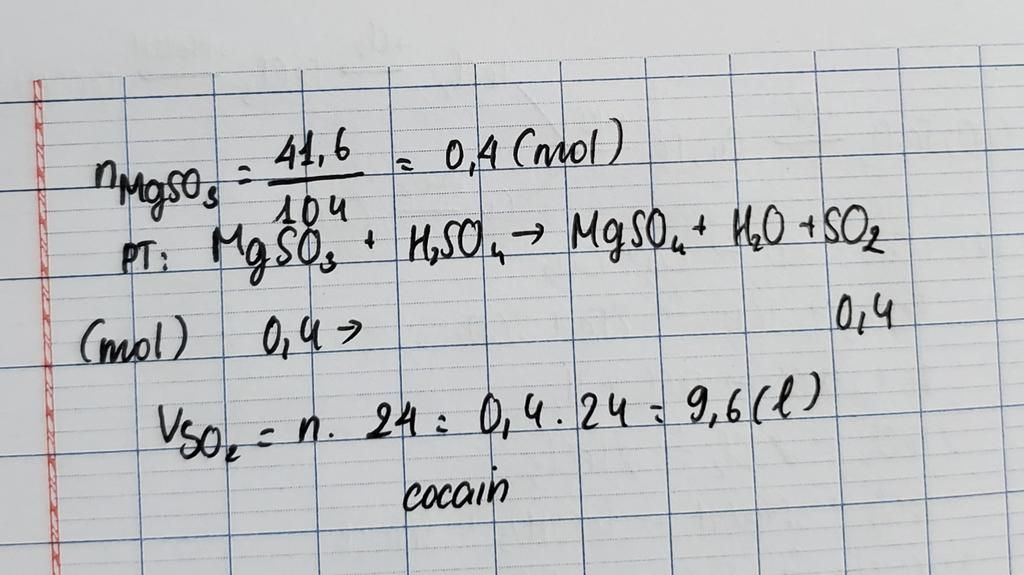 nMgSO₃ = 41,6 / 104 = 0,4 (mol)
PT: MgSO₃ + H₂SO₄ → MgSO₄ + H₂O + SO₂
(mol) 0,4 → 0,4
VSO₂ = n. 24 = 0,4 . 24 = 9,6 (l)
cocain